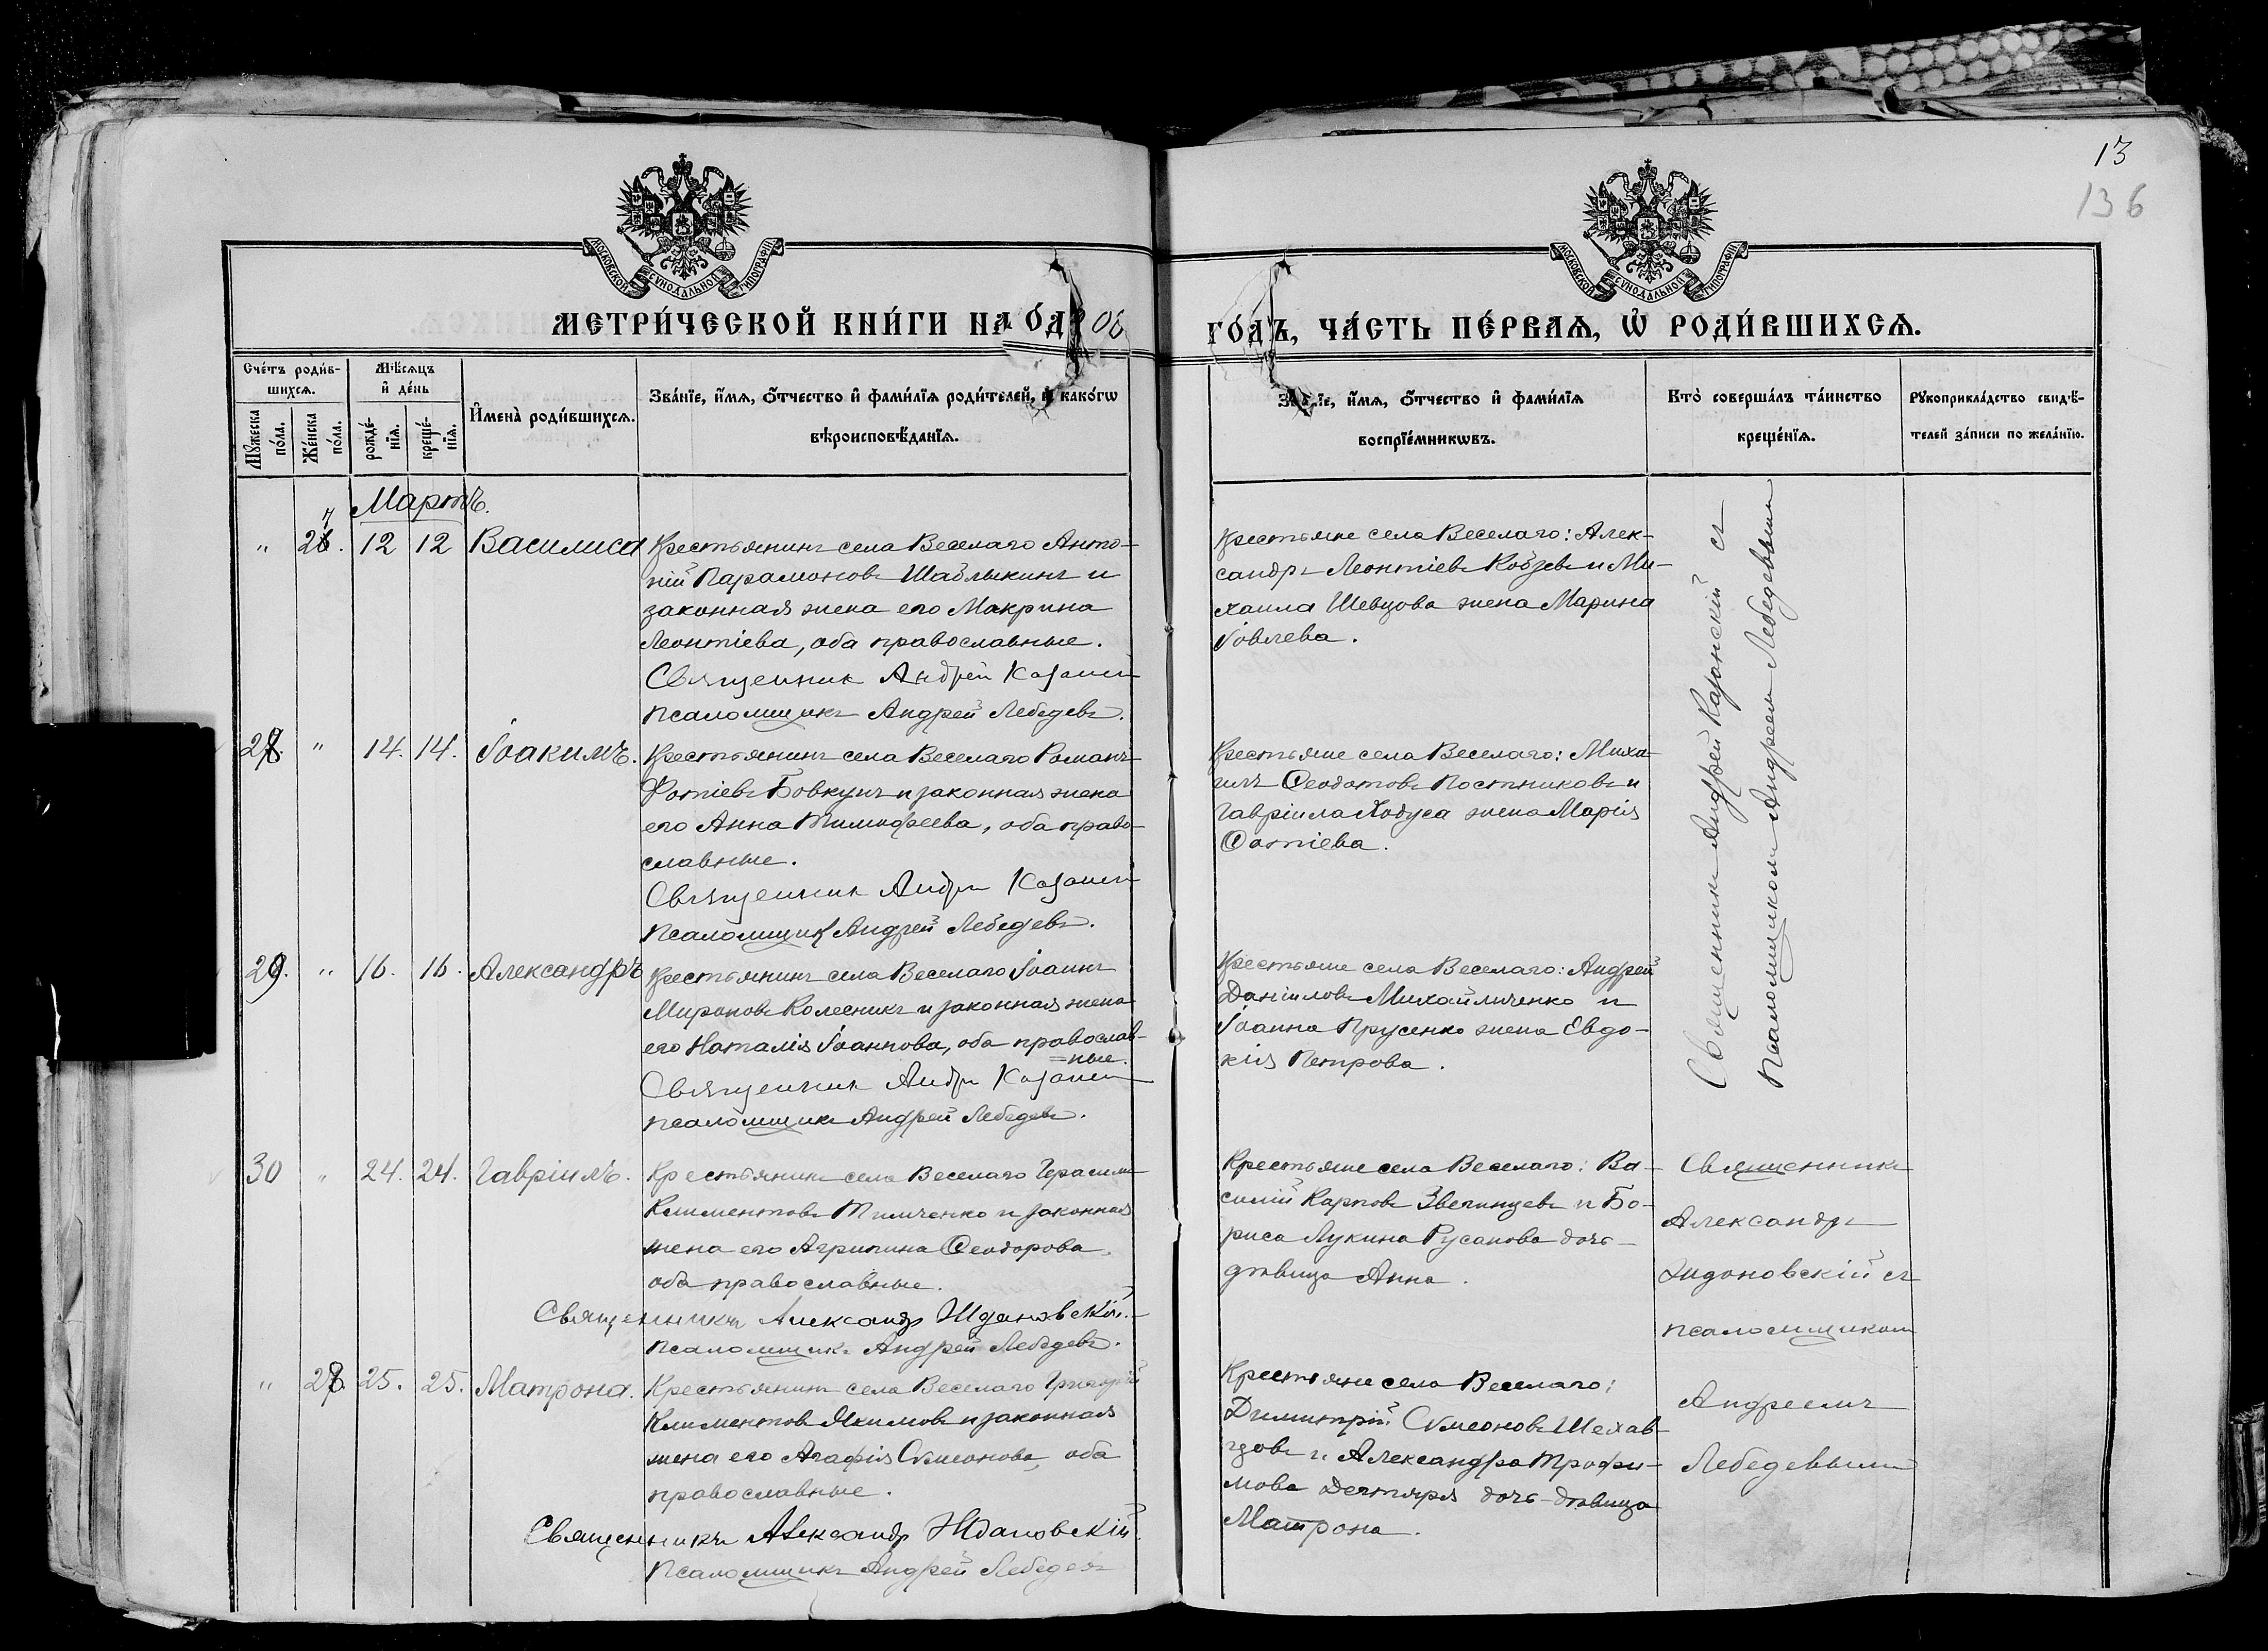 13
136
МОСКОВСКОЙ СУНОДАЛЬНОЙ ТИПОГРАФІИ
МОСКОВСКОЙ СУНОДАЛЬНОЙ ТИПОГРАФІИ
МЕТРИ́ЧЕСКОЙ КНИ́ГИ НА 06
ГО́ДЪ, ЧА́СТЬ ПЕ́РВАѦ, Ѽ РОДИ́ВШИХСѦ.
Сче́тъ роди́в-
шихсѧ.
Мꙋ́жеска по́ла.
Же́нска по́ла.
Мѣ́сѧцъ
и҆ де́нь
рожде́-
нїѧ.
креще́-
нїѧ.
И҆мена̀ роди́вшихсѧ.
Зва́нїе, и҆́мѧ, ѻ҆́тчество и҆ фами́лїѧ роди́телей, и҆ како́гѡ
вѣроисповѣ́данїѧ.
и҆́мѧ, ѻ҆́тчество и҆ фами́лїѧ
воспрїе́мникѡвъ.
Кто̀ соверша́лъ та́инство
креще́нїѧ.
Рꙋкоприкла́дство свидѣ́-
телей за́писи по жела́нїю.
Мартъ.
" 27. 12 12 Василиса
Крестьянинъ села Веселаго Анто-
ній Парамоновъ Шаблыкинъ и
законная жена его Макрина
Леонтіева, оба православные.
Священник Андрей
Псаломщикъ Андрей Лебедевъ.
Крестьяне села Веселаго: Алек-
сандръ Леонтіевъ Кобзевъ и Ми-
хаила Шевцова жена Марина
Іовлева.
Священникъ Андрей Казанскій съ
Псаломщикомъ Андреем Лебедевым
" 14. 14. Іоакимъ.
Крестьянинъ села Веселаго Романъ
Фотіевъ Бовкунъ и законная жена
его Анна Тимофеева, оба право-
славные.
Священник
Псаломщик Андрей Лебедевъ.
Крестьяне села Веселаго: Миха-
илъ Ѳеодотовъ Постниковъ и
Гавріила жена Марія
Ѳотіева.
29. " 16. 16. Александръ
Крестьянинъ села Веселаго Іоаннъ
Мироновъ Колесникъ и законная жена
его Наталія Іоаннова, оба православ-
=ные.
Священник
Псаломщикъ Андрей Лебедевъ.
Крестьяне села Веселаго: Андрей
Даніиловъ Михайличенко и
Іоанна Прусенко жена Евдо-
кія Петрова.
30 " 24. 24. Гавріилъ.
Крестьянинъ села Веселаго Герасимъ
Климентовъ Тимченко и законная
жена его Агрипина Ѳеодорова,
оба православные.
Священникъ Александр Ждановскій.
Псаломщикъ Андрей Лебедевъ.
Крестьяне села Веселаго: Ва-
силій Карповъ Звегинцевъ и Бо-
риса Лукина Русанова дочь-
дѣвица Анна.
Священникъ
Александръ
Ждановскій съ
псаломщиком
Андреемъ
Лебедевымъ
" 28. 25. 25. Матрона.
Крестьянинъ села Веселаго Григорій
Климентов Якимовъ и законная
жена его Агафія Сѵмеонова, оба
православные.
Священникъ Александр Ждановскій.
Псаломщикъ Андрей Лебедевъ
Крестьяне села Веселаго:
Димитрій Сѵмеоновъ Шехав-
цовъ и Александра Трофи-
мова Дехтяря дочь-дѣвица
Матрона.